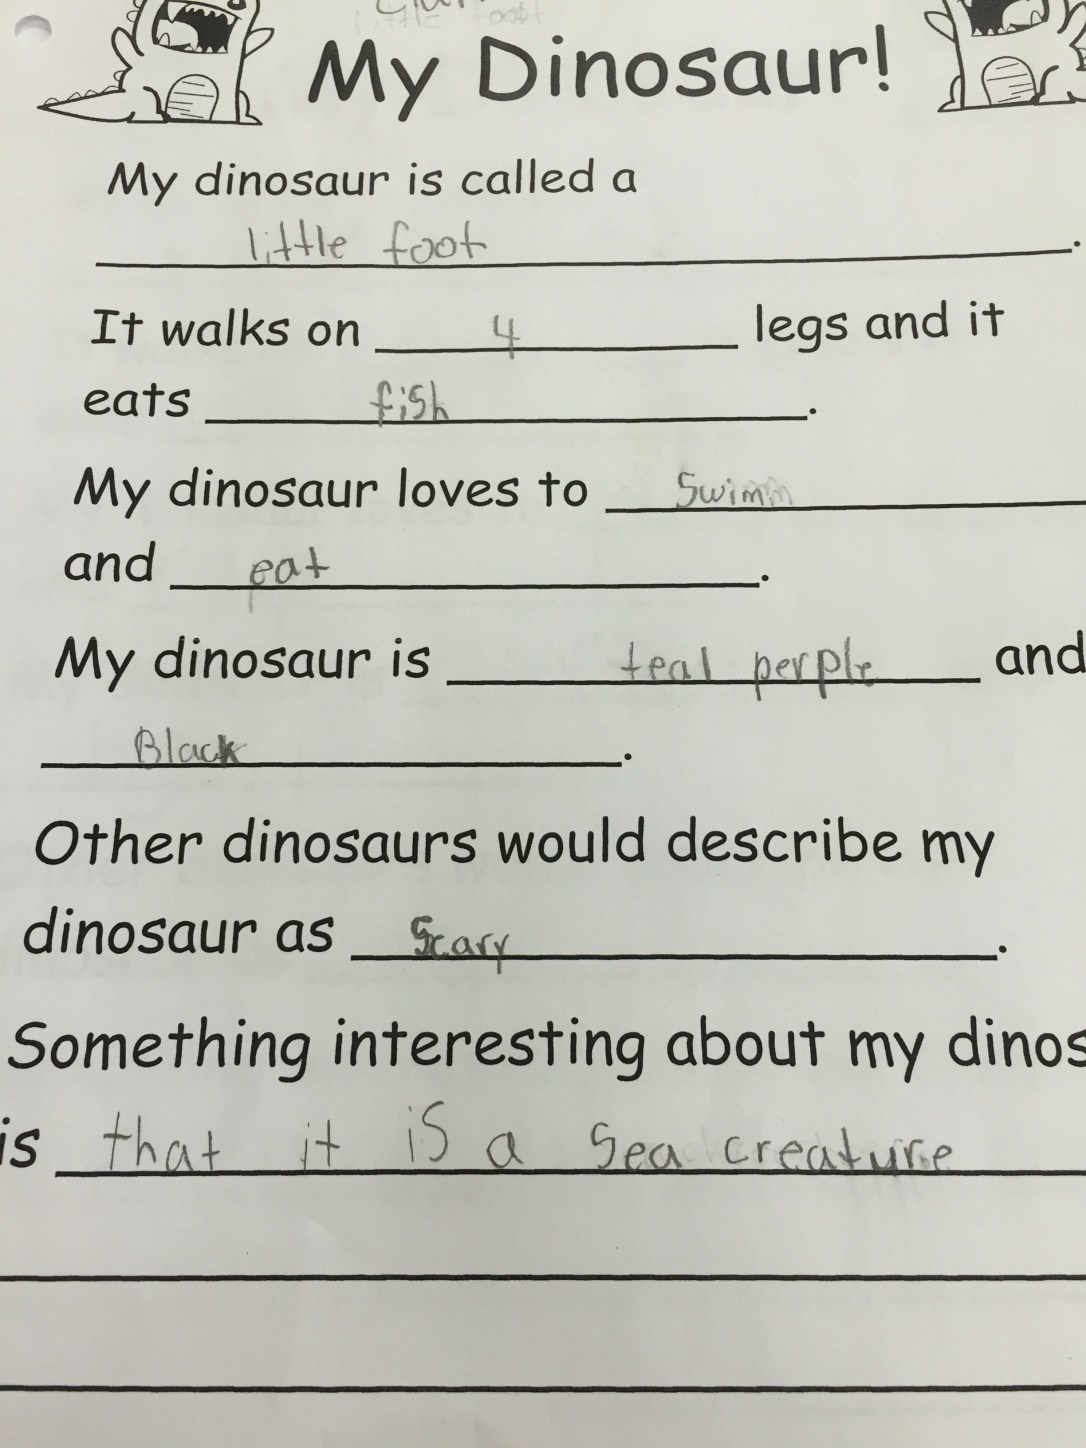 little foot
My Dinosaur!
My dinosaur is called a
little foot.
It walks on 4 legs and it
eats fish.
My dinosaur loves to Swimm
and eat.
My dinosaur is teal perple and
Black.
Other dinosaurs would describe my
dinosaur as Scary.
Something interesting about my dinos
is that it is a Sea creature